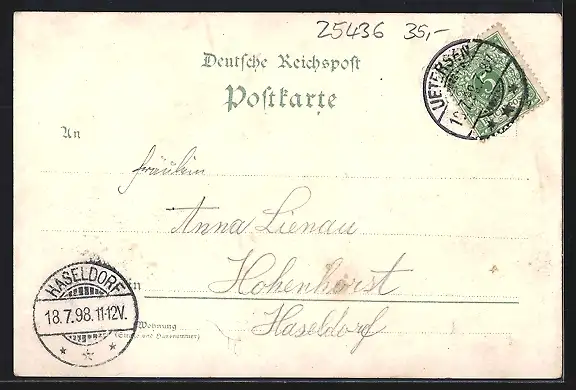 25436 35,-
Deutsche Reichspost
Postkarte
UETERSEN
5
An
Fräulein
Anna Lienau
in
Hohenhorst
Haseldorf
Wohnung
(Straße und Hausnummer)
HASELDORF
18.7.98.11-12V.